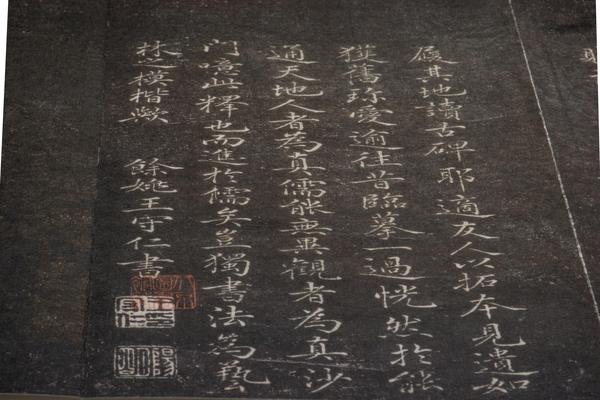 履其地讀古碑耶適友人以拓本見遺如
獲舊珍愛逾往昔臨摹一過恍然於能
通天地人者為真儒能無異觀者為真沙
門噫此釋也而進於儒矣豈獨書法為藝
林之模楷歟　餘姚王守仁書